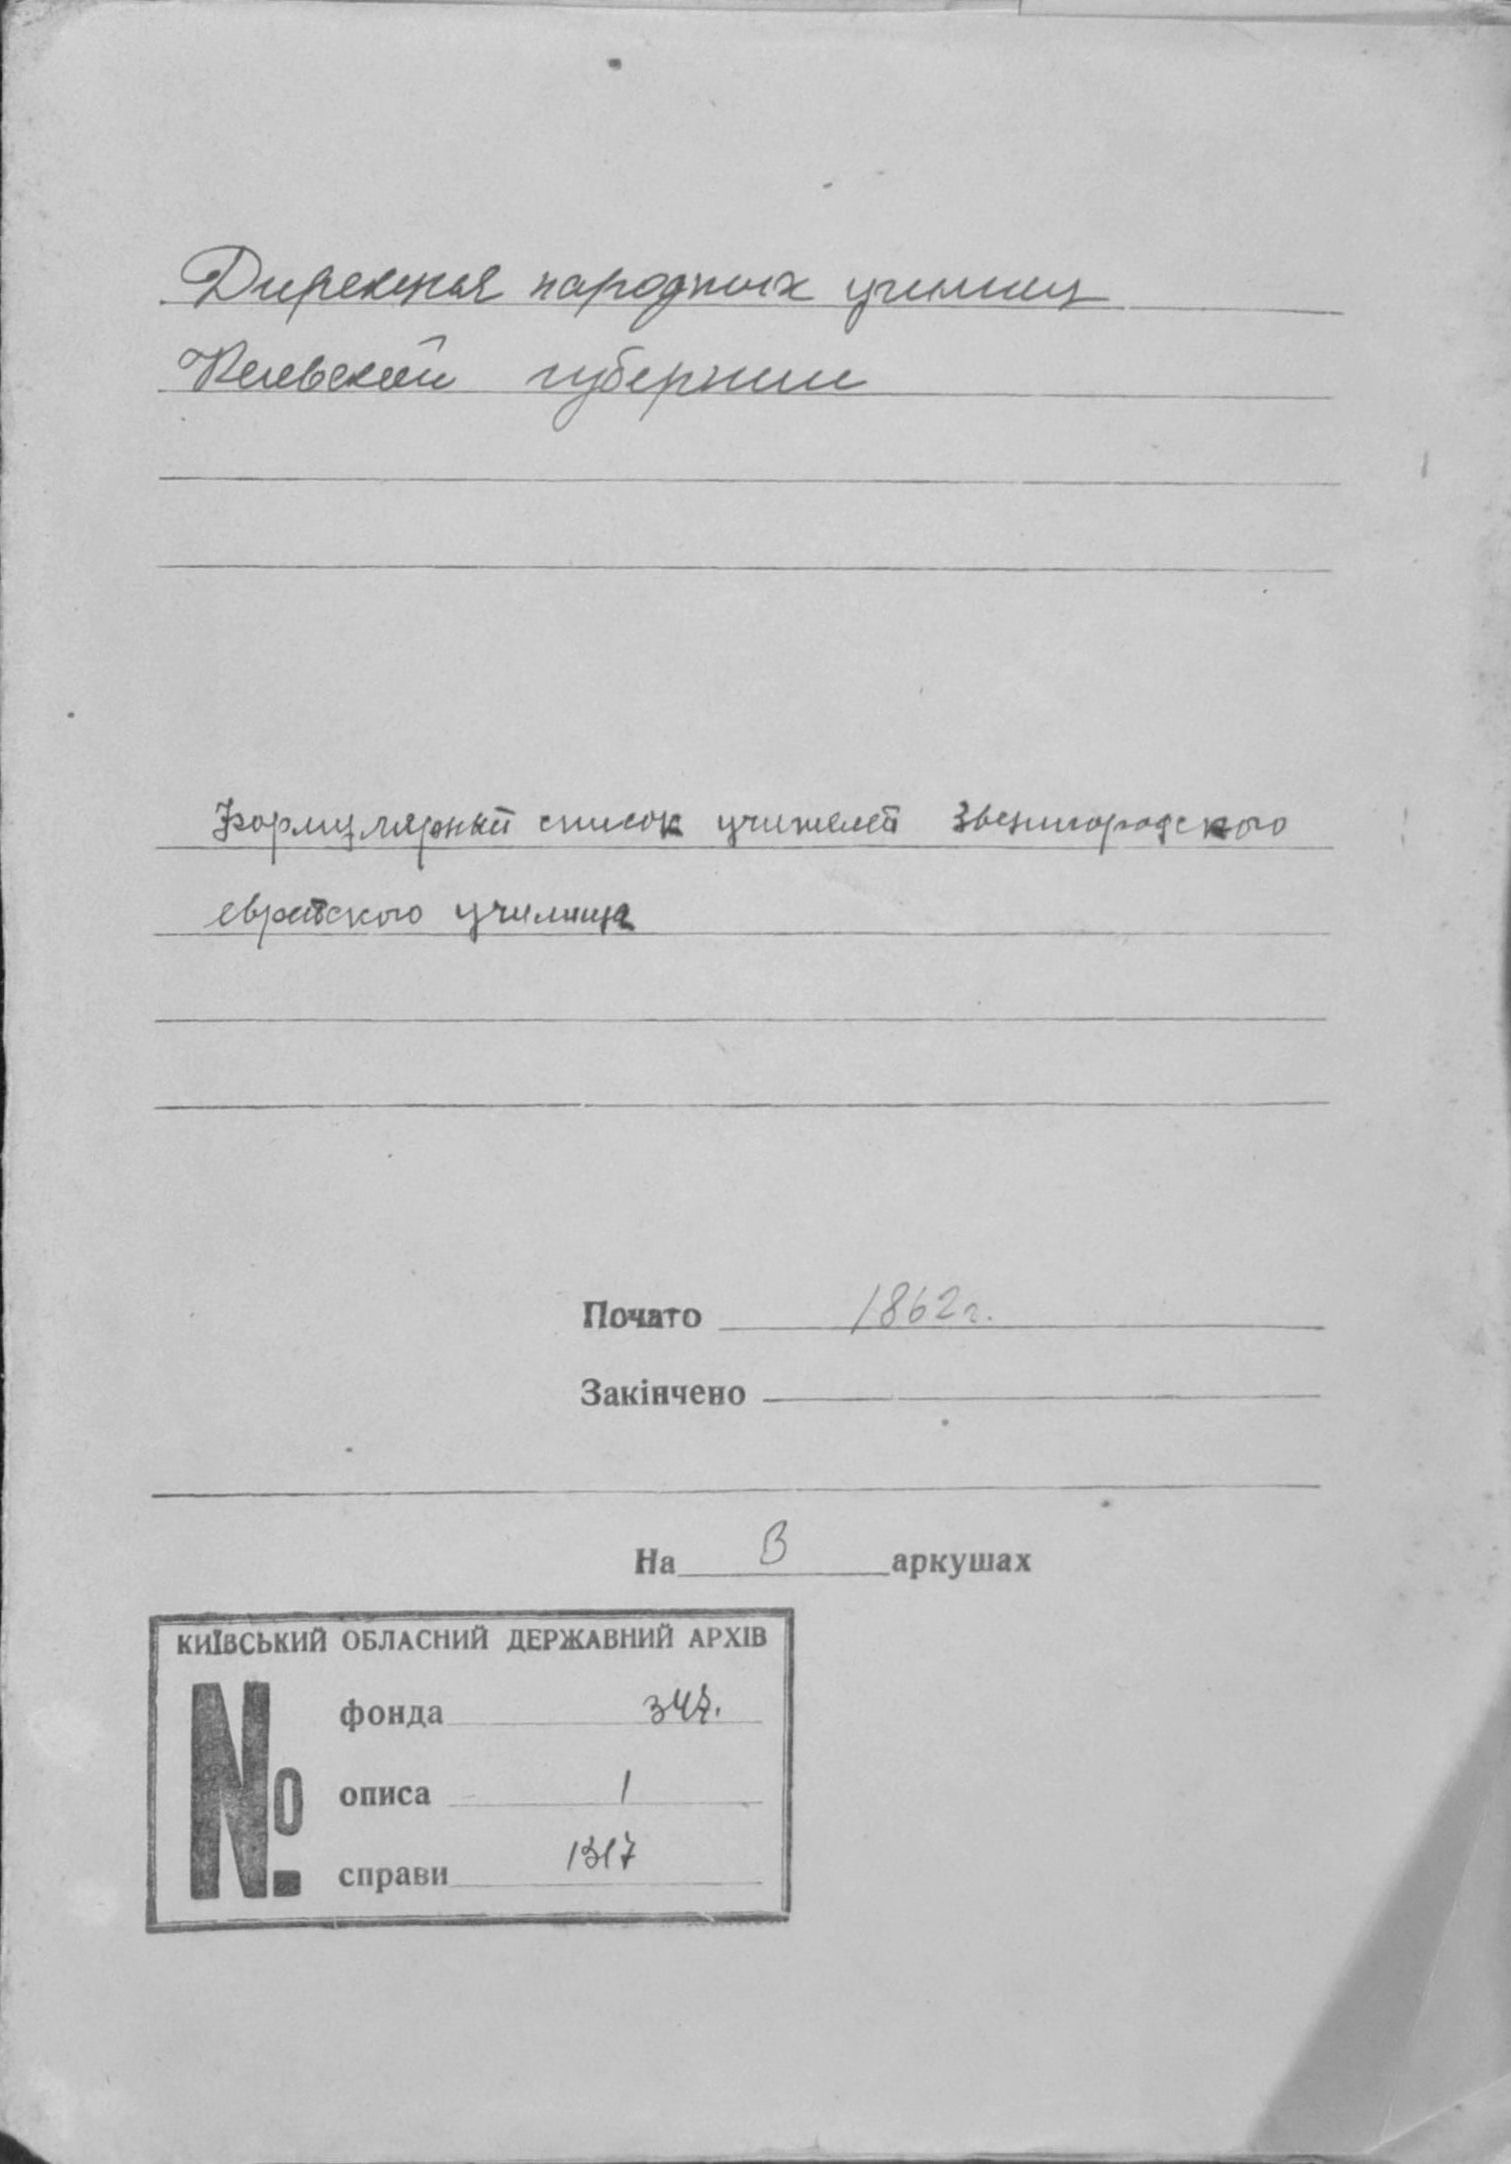 Дирекция народных училищ
Киевской губернии
Формулярный список учителей Звенигородского
еврейского училища
Почато 1862г.
Закінчено
На аркушах
КИЇВСЬКИЙ ОБЛАСНИЙ ДЕРЖАВНИЙ АРХІВ
№ фонда
описа 1
справи 1317